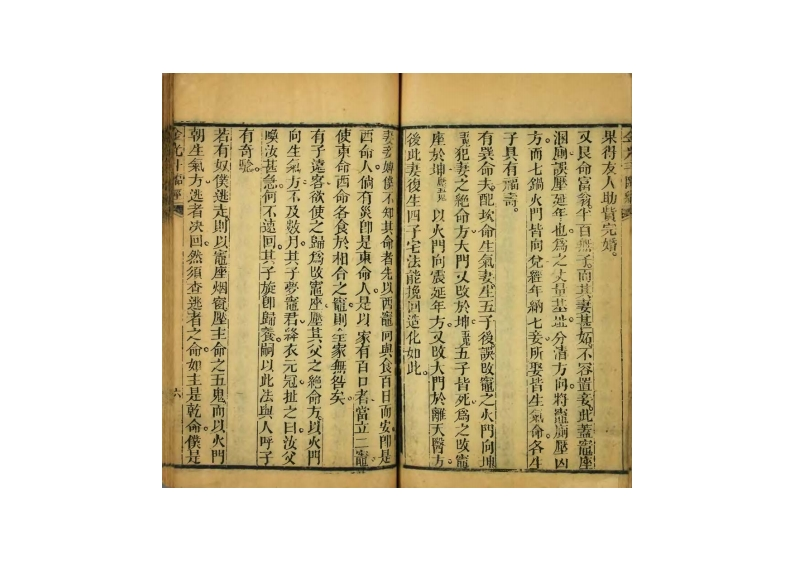 果得友人助貲完婚。
又艮命富翁半百無子。而其妻甚妬。不容置妾。此蓋竈座
溷廁誤壓延年也。為之丈量基址。分清方向。將竈廁壓凶
方。而七鍋火門皆向兌。經年納七妾。所娶皆生氣命。各生
子。具有福壽。
有巽命夫。配坎命生氣妻。生五子。後誤改竈之火門向坤
犯妻之絕命方。大門又改於坤。五子皆死。為之改竈
座於坤 以火門向震延年方。又改大門於離天醫方。
後此妻復生四子。宅法能挽回造化如此。
妻妾婢僕不知其命者。先以西竈間與食百日而安。即是
西命人。倘有災即是東命人。是以家有百口者。當立二竈
使東命西命各食於相合之竈。則全家無咎矣。
有子遠客。欲使之歸。為改竈座。壓其父之絕命方。以火門
向生氣方。不及數月。其子夢竈君絳衣元冠扯之曰。汝父
喚汝甚急。何不遠回。其子旋即歸養。嗣以此法與人呼子
有奇驗。
若有奴僕逃走。則以竈座烟窗壓主命之五鬼。而以火門
朝生氣方。逃者次回。然須查逃者之命。如主是乾命。僕是
六